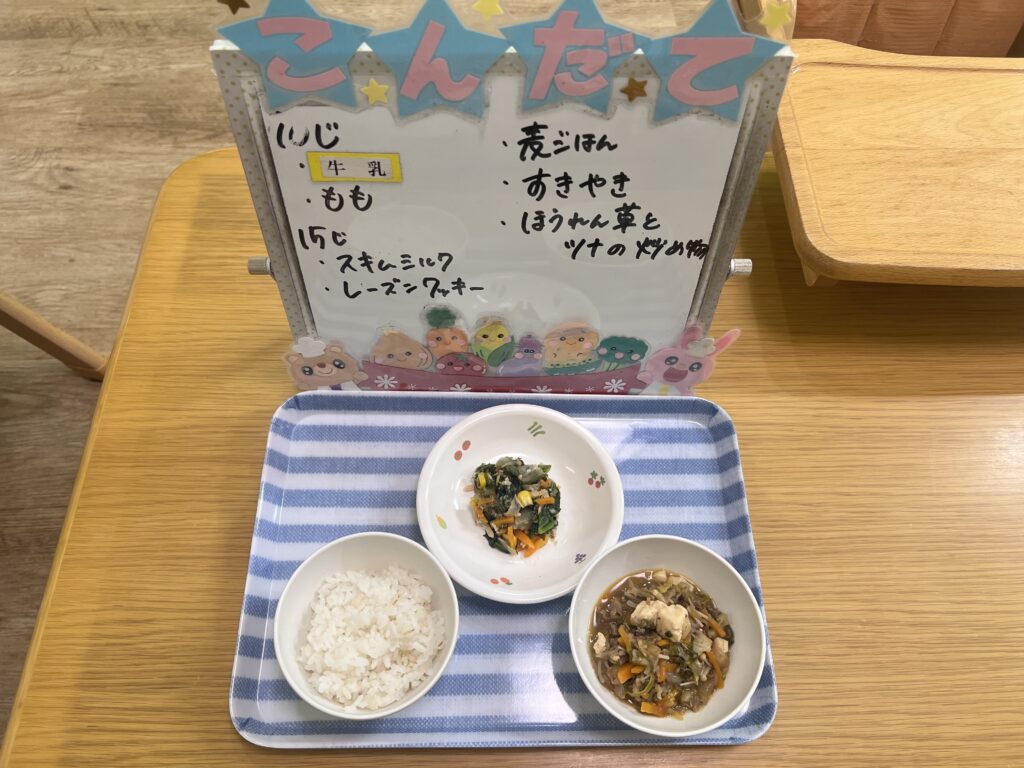 こんだて
10じ
・牛乳
・もも
15じ
・スキムミルク
・レーズンクッキー
・麦ごはん
・すきやき
・ほうれん草と
ツナの炒め物